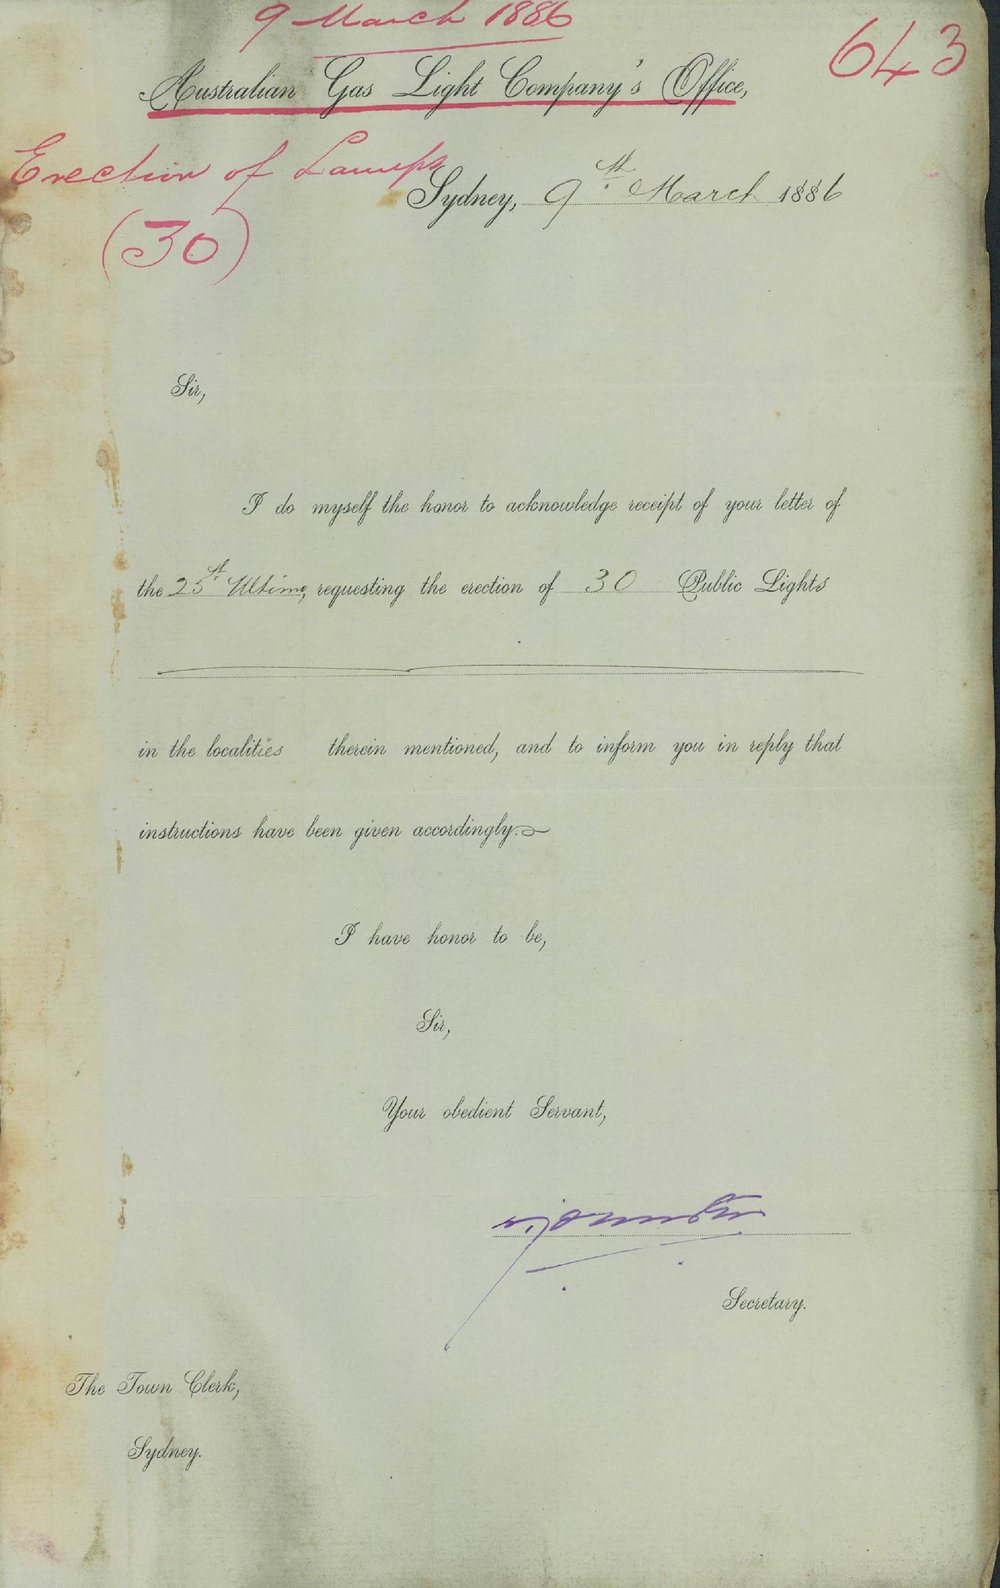 9 March 1886
643
Australian Gas Light Company's Office,
Erection of Lamps
Sydney, 9th March 1886
(30)
Sir,
I do myself the honor to acknowledge receipt of your letter of
the 25st Ultimo, requesting the erection of 30 Public Lights
in the localities therein mentioned, and to inform you in reply that
instructions have been given accordingly.
I have honor to be,
Sir,
Your obedient Servant,
Secretary.
The Town Clerk,
Sydney.